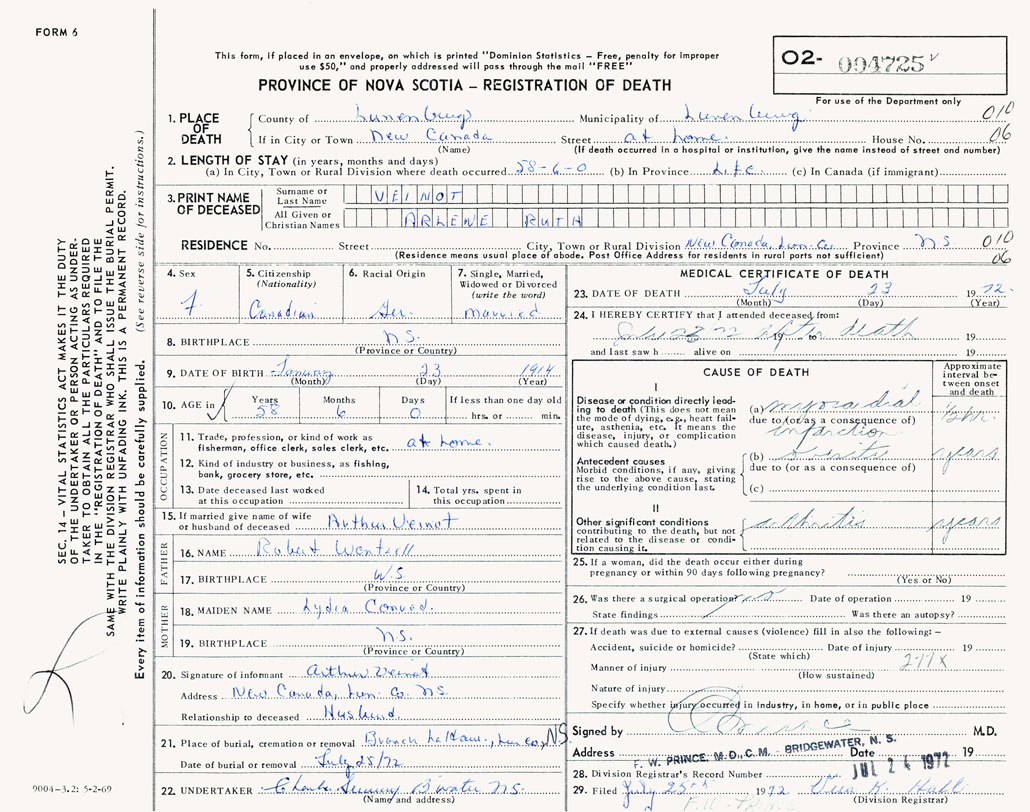 FORM 6
This form, if placed in an envelope, on which is printed "Dominion Statistics – Free, penalty for improper
use $50," and properly addressed will pass through the mail "FREE"
O2- 004725
For use of the Department only
PROVINCE OF NOVA SCOTIA – REGISTRATION OF DEATH
1. PLACE OF DEATH
County of Lunenburg Municipality of Lunenburg 010
If in City or Town New Canada Street at home. House No. 06
(Name) (If death occurred in a hospital or institution, give the name instead of street and number)
2. LENGTH OF STAY (in years, months and days)
(a) In City, Town or Rural Division where death occurred 58-6-0 (b) In Province Life (c) In Canada (if immigrant)
3. PRINT NAME OF DECEASED
Surname or Last Name VEINOT
All Given or Christian Names ARLENE RUTH
RESIDENCE No. Street City, Town or Rural Division New Canada, Lun. Co. Province N.S. 010
(Residence means usual place of abode. Post Office Address for residents in rural parts not sufficient) 06
4. Sex
f
5. Citizenship
(Nationality)
Canadian
6. Racial Origin
Ger.
7. Single, Married,
Widowed or Divorced
(write the word)
married
8. BIRTHPLACE N.S.
(Province or Country)
9. DATE OF BIRTH January 23 1914
(Month) (Day) (Year)
10. AGE in
Years Months Days If less than one day old
58 6 0 hrs. or min.
OCCUPATION
11. Trade, profession, or kind of work as
fisherman, office clerk, sales clerk, etc. at home.
12. Kind of industry or business, as fishing,
bank, grocery store, etc.
13. Date deceased last worked
at this occupation
14. Total yrs. spent in
this occupation
15. If married give name of wife
or husband of deceased Arthur Veinot
FATHER
16. NAME Robert
17. BIRTHPLACE
(Province or Country)
MOTHER
18. MAIDEN NAME Lydia Conrad
19. BIRTHPLACE N.S.
(Province or Country)
20. Signature of informant Arthur Veinot
Address New Canada, Lun. Co. N.S.
Relationship to deceased Husband.
21. Place of burial, cremation or removal Branch LaHave, Lun. Co., NS
Date of burial or removal July 25/72
22. UNDERTAKER N.S.
(Name and address)
MEDICAL CERTIFICATE OF DEATH
23. DATE OF DEATH July 23 1972.
(Month) (Day) (Year)
24. I HEREBY CERTIFY that I attended deceased from:
19 to after death 19
and last saw h alive on 19
CAUSE OF DEATH
Approximate
interval be-
tween onset
and death
I
Disease or condition directly lead-
ing to death (This does not mean
the mode of dying, e.g., heart fail-
ure, asthenia, etc. It means the
disease, injury, or complication
which caused death.)
(a) myocardial 1/2 hr.
due to (or as a consequence of)
infarction
Antecedent causes
Morbid conditions, if any, giving
rise to the above cause, stating
the underlying condition last.
(b) obesity years
due to (or as a consequence of)
(c)
II
Other significant conditions
contributing to the death, but not
related to the disease or condi-
tion causing it.
arthritis years
25. If a woman, did the death occur either during
pregnancy or within 90 days following pregnancy?
(Yes or No)
26. Was there a surgical operation? Date of operation 19
State findings Was there an autopsy?
27. If death was due to external causes (violence) fill in also the following: –
Accident, suicide or homicide? Date of injury 19
(State which)
Manner of injury 277X
(How sustained)
Nature of injury
Specify whether injury occurred in Industry, in home, or in public place
Signed by M.D.
Address F. W. PRINCE, M.D., C.M. - BRIDGEWATER, N. S. Date 19
JUL 24 1972
28. Division Registrar's Record Number
29. Filed July 25th 1972
(Division Registrar)
SEC. 14 – VITAL STATISTICS ACT MAKES IT THE DUTY
OF THE UNDERTAKER OR PERSON ACTING AS UNDER-
TAKER TO OBTAIN ALL THE PARTICULARS REQUIRED
IN THE "REGISTRATION OF DEATH" AND TO FILE THE
SAME WITH THE DIVISION REGISTRAR WHO SHALL ISSUE THE BURIAL PERMIT.
WRITE PLAINLY WITH UNFADING INK. THIS IS A PERMANENT RECORD.
Every item of information should be carefully supplied. (See reverse side for instructions.)
9004-3.2: 5-2-69